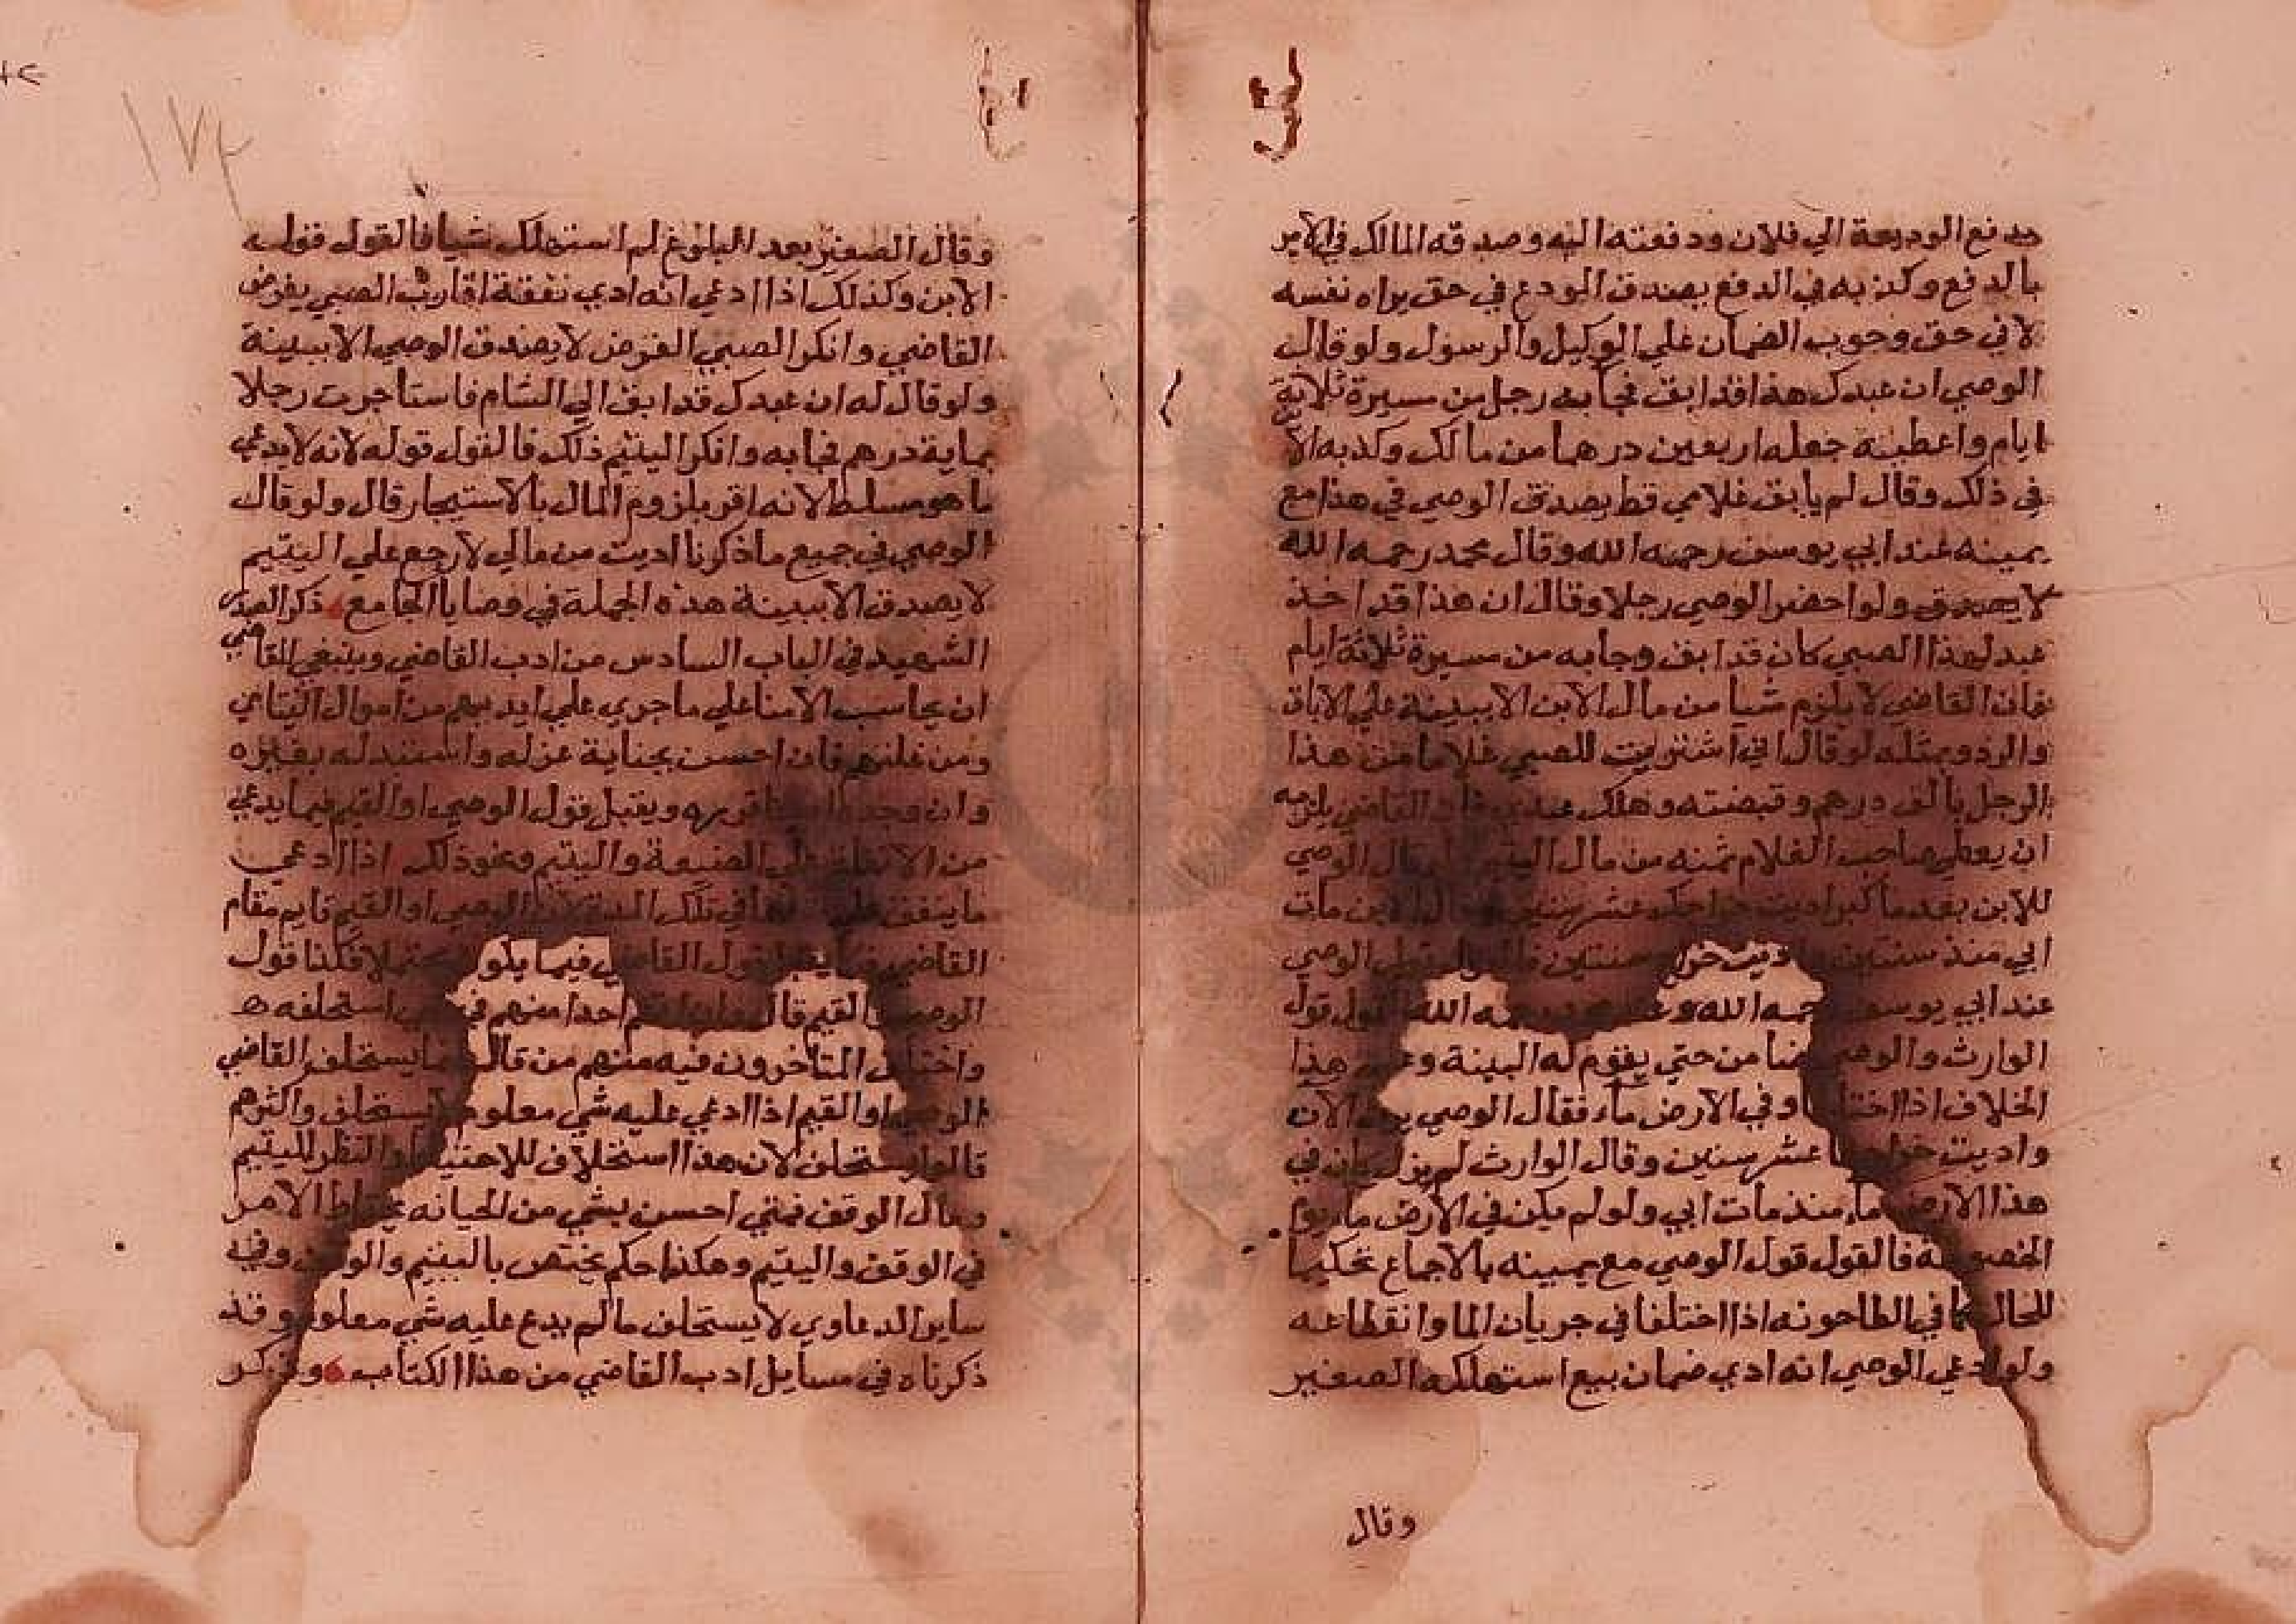 بدفع الوديعة الي فلان ودفعته اليه وصدقه المالك في الامر
بالدفع وكذبه في الدفع يصدق المودع في حق براه نفسه
لا في حق وجوب الضمان علي الوكيل والرسول ولو قال
الوصي ان عبدك هذا قد ابق فجا به رجل من مسيرة ثلاثة
ايام واعطيته جعله اربعين درهما من مالك وكذبه الا
في ذلك وقال لم يابق غلامي قط يصدق الوصي في هذا مع
يمينه عند ابي يوسف رحمه الله وقال محمد رحمه الله
لا يصدق ولو احضر الوصي رجلا وقال ان هذا قد اخذ
عبد لهذا الصبي كان قد ابق وجا به من مسيرة ثلاثة ايام
فان القاضي لا يلزم شيا من مال الابن الا ببينة علي الاباق
والرد وبمثله لو قال اني اشتريت للصبي غلاما من هذا
الرجل بالف درهم وقبضته وهلك عندي القاضي يلزمه
ان يعطي صاحب الغلام ثمنه من مال اليتيم قال الوصي
للابن بعد ما كبر اديت خراجك عشر سنين الابن مات
ابي منذ سنتين سنتين الوصي
عند ابي يوسف رحمه الله الله القول قول
الوارث والوصي ضامن حتي يقوم له البينة وعلي هذا
الخلاف اذا اختلفا وفي الارض ماء فقال الوصي الآن
واديت خراجها عشر سنين وقال الوارث لم يزل كان في
هذا الارض ماء منذ مات ابي ولو لم يكن في الارض ماء يوم
الخصومة فالقول قول الوصي مع يمينه بالاجماع تحكيما
للحال كما في الطاحونه اذا اختلفا في جريان الما وانقطاعه
ولو ادعي الوصي انه ادي ضمان بيع استهلكه الصغير
وقال
وقال الصغير بعد البلوغ لم استهلك شيا فالقول قول
الابن وكذلك اذا ادعي انه ادي نفقة اقارب الصبي بفرض
القاضي وانكر الصبي الفرض لا يصدق الوصي الا ببينة
ولو قال له ان عبدك قد ابق الي الشام فاستاجرت رجلا
بماية درهم فجا به وانكر اليتيم ذلك فالقول قوله لانه لا يدعي
ما هو مسلط لانه اقر بلزوم المال بالاستيجار قال ولو قال
الوصي في جميع ما ذكرنا اديت من مالي لارجع علي اليتيم
لا يصدق الا ببينة هذه الجملة في وصايا الجامع ذكر الصدر
الشهيد في الباب السادس من ادب القاضي وينبغي للقاضي
ان يحاسب الامنا علي ما جري علي ايديهم من اموال اليتامي
ومن غلتهم فان احسن بجناية عزله واستبدله بغيره
وان وجد قرره ويقبل قول الوصي او القيم فيما يدعي
من الانفاق علي الضيعة واليتيم ونحو ذلك اذا ادعي
ما ينفق في تلك المدة لان الوصي او القيم قايم مقام
القاضي قول القاضي فيما محتملا فكذا قول
الوصي والقيم قال احدا منهم في استحلفه
واختلف المتاخرون فيه منهم من قال يستحلف القاضي
الوصي او القيم اذا ادعي عليه شي معلوم يستحلف واكثرهم
قالوا يستحلف لان هذا استحلاف للاحتياط والنظر لليتيم
ومال الوقف فمتي احسن بشي من الخيانه يحتاط الامر
في الوقف واليتيم وهكذا حكم يختص باليتيم والوقف وفي
ساير الدعاوي لا يستحلف ما لم يدع عليه شي معلوم وقد
ذكرناه في مسايل ادب القاضي من هذا الكتاب وذكر